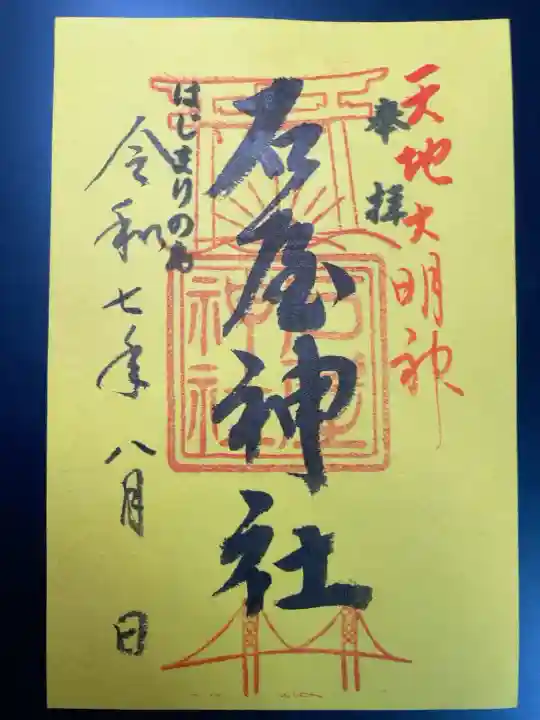 天地大明神
奉拝
石屋神社
石屋
神社
はじまりの島
令和七年八月 日